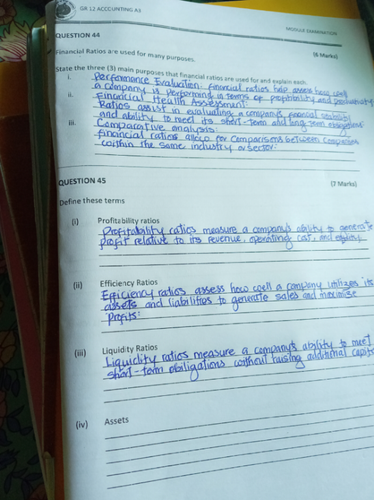 GR 12 ACCOUNTING A3
MODULE EXAMINATION
QUESTION 44
(6 Marks)
Financial Ratios are used for many purposes.
State the three (3) main purposes that financial ratios are used for and explain each.
i. Performance Evaluation: financial ratios help assess how well
a company is performing in terms of profitability and
ii. Financial Health Assessment:
Ratios assist in evaluating a company's financial stability
and ability to meet its short-term and long-term
iii. Comparative analysis:
financial ratios allow for comparisons between companies
within the same industry or sector.
QUESTION 45
(7 Marks)
Define these terms
(i) Profitability ratios
Profitability ratios measure a company's ability to generate
profit relative to its revenue, operating cost, and equity
(ii) Efficiency Ratios
Efficiency ratios assess how well a company utilizes its
assets and liabilities to generate sales and maximise
profits.
(iii) Liquidity Ratios
Liquidity ratios measure a company's ability to meet
short-term obligations without raising additional
(iv) Assets